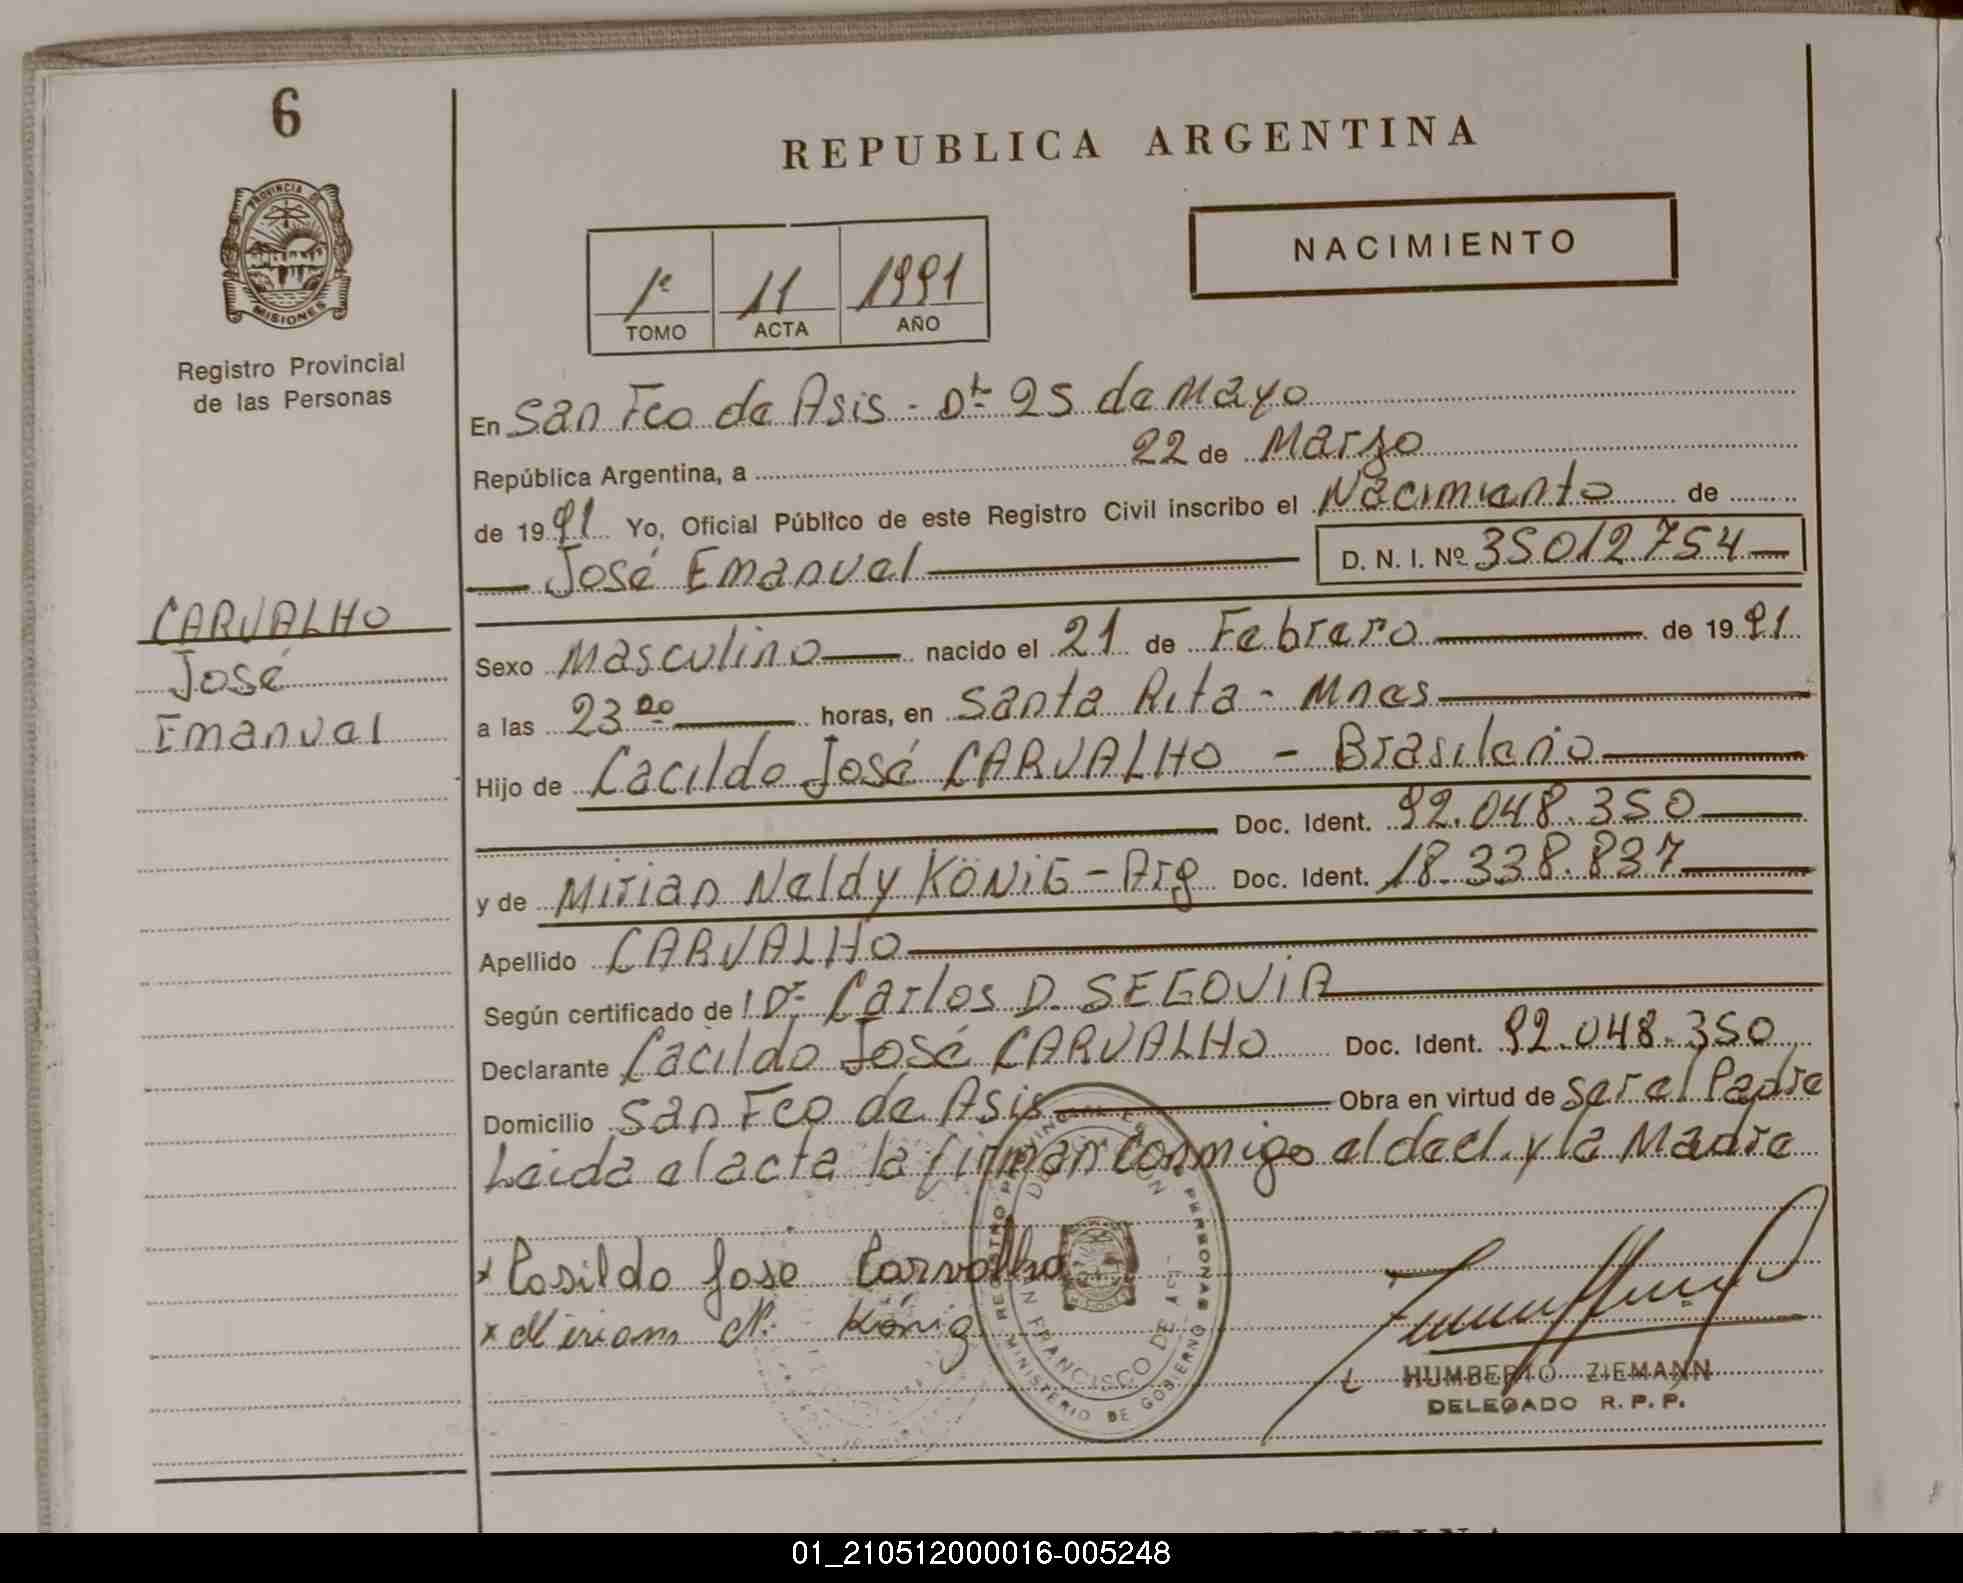 6
PROVINCIA DE
MISIONES
Registro Provincial
de las Personas
CARVALHO
José
Emanuel
REPUBLICA ARGENTINA
NACIMIENTO
1º 11 1991
TOMO ACTA AÑO
En San Fco de Asis - Dto 25 de Mayo
República Argentina, a 22 de Marzo
de 1991 Yo, Oficial Público de este Registro Civil inscribo el Nacimiento de
José Emanuel D. N. I. Nº 35012754
Sexo Masculino nacido el 21 de Febrero de 1991
a las 23 00 horas, en Santa Rita - Mnes
Hijo de Cacildo José CARVALHO - Brasileño
Doc. Ident. 92.048.350
y de Mirian Neldy KÖNiG - Arg Doc. Ident. 18.338.837
Apellido CARVALHO
Según certificado de Dr. Carlos D. SEGOViA
Declarante Cacildo José CARVALHO Doc. Ident. 92.048.350
Domicilio San Fco de Asis Obra en virtud de ser el Padre
Leida el acta la firman conmigo el decl. y la Madre
x Casildo Jose Carvalho
x Miriam N. König
REGISTRO PROVINCIAL DE LAS PERSONAS
MINISTERIO DE GOBIERNO
DELEGACION
SAN FRANCISCO DE ASIS
HUMBERTO ZIEMANN
DELEGADO R. P. P.
01_210512000016-005248